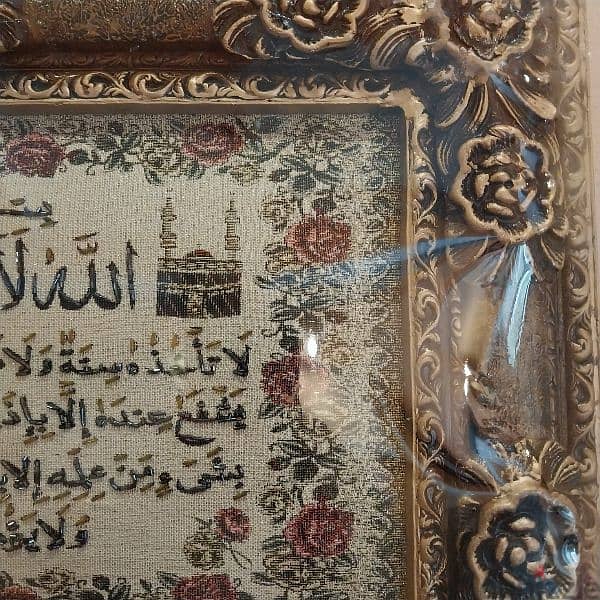 بسـ
اللَّهُ لَا
لَا تَأْخُذُهُ سِنَةٌ وَلَا
يَشْفَعُ عِنْدَهُ إِلَّا بِإِذ
بِشَيْءٍ مِنْ عِلْمِهِ إِلَّا بِ
وَلَا يَؤُ